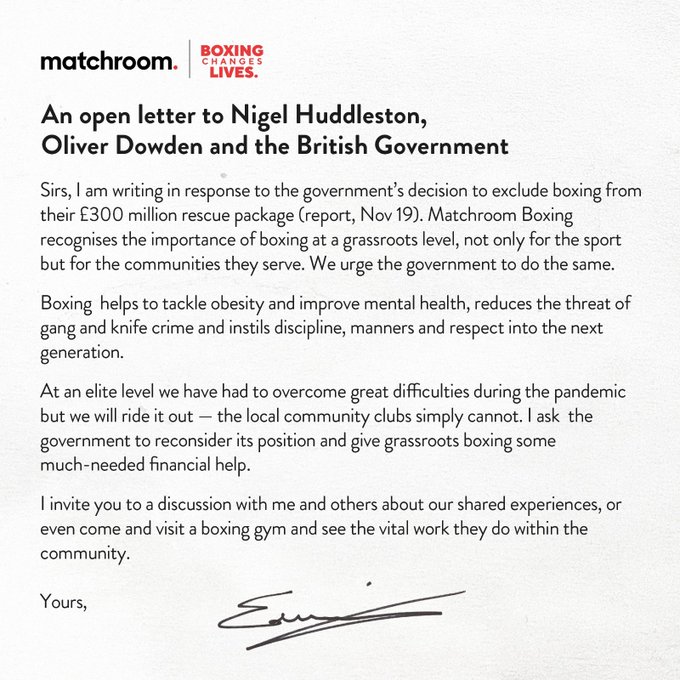 matchroom. BOXING
CHANGES
LIVES.
An open letter to Nigel Huddleston,
Oliver Dowden and the British Government
Sirs, I am writing in response to the government's decision to exclude boxing from
their £300 million rescue package (report, Nov 19). Matchroom Boxing
recognises the importance of boxing at a grassroots level, not only for the sport
but for the communities they serve. We urge the government to do the same.
Boxing helps to tackle obesity and improve mental health, reduces the threat of
gang and knife crime and instils discipline, manners and respect into the next
generation.
At an elite level we have had to overcome great difficulties during the pandemic
but we will ride it out — the local community clubs simply cannot. I ask the
government to reconsider its position and give grassroots boxing some
much-needed financial help.
I invite you to a discussion with me and others about our shared experiences, or
even come and visit a boxing gym and see the vital work they do within the
community.
Yours,